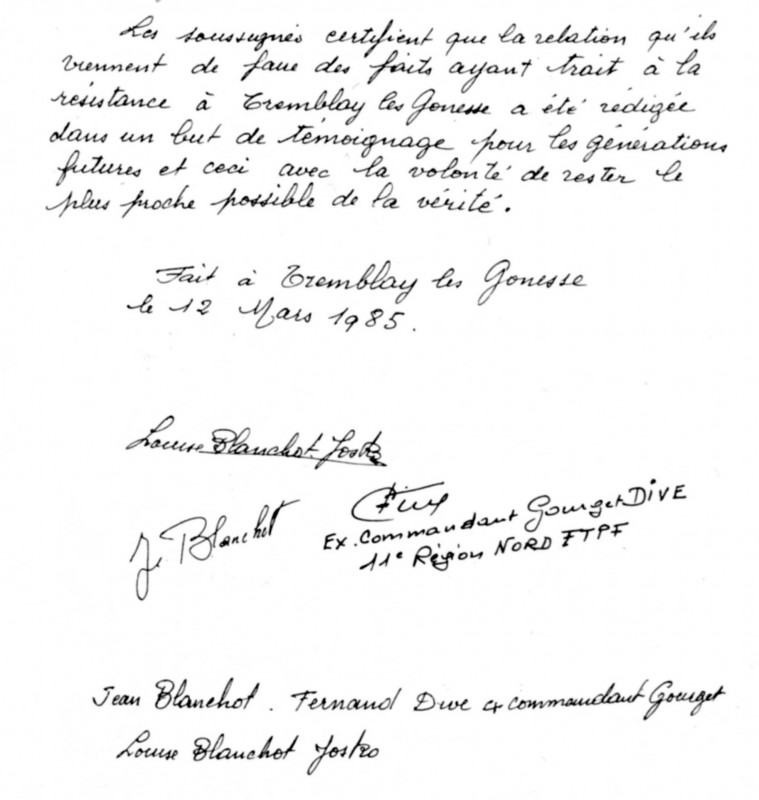 Les soussignés certifient que la relation qu'ils
viennent de faire des faits ayant trait à la
résistance à Tremblay les Gonesse a été rédigée
dans un but de témoignage pour les générations
futures et ceci avec la volonté de rester le
plus proche possible de la vérité.
Fait à Tremblay les Gonesse
le 12 Mars 1985.
Louise Blanchot Jostro
J. Blanchot
Ex. Commandant Gourget DIVE
11e Région NORD FTPF
Jean Blanchot. Fernand Dive ex commandant Gourget
Louise Blanchot Jostro